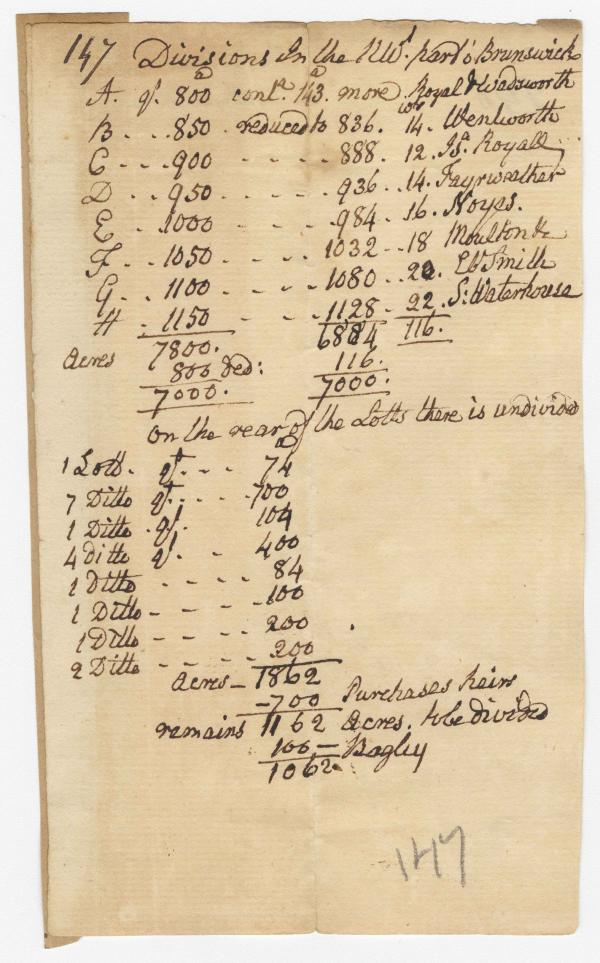 147 Divisions In the NWt. part o Brunswick
A. qt. 800a contg. 143.a more Royal & Wadsworth
B - - 850 - reduced to 836. 14. Wenlworth
C - - - 900 - - - - - 888. 12. Jsa. Royall
D - - 950 - - - - - 936 - 14. Fayrweather
E - - 1000 - - - - 984 - 16. Noyes.
F. - - 1050 - - - - 1032 - - 18 Moulton &c
G. - - 1100 - - - - 1080 - 20. Smith
H - 1150 - - - - 1128 - 22. S: Waterhouse
Acres 7800. 6884 116.
800 ded: 116.
7000. 7000.
on the rear of the Lotts there is undivided
1 Lott. qt. - - 74a
7 Ditto qt. - - - 700
1 Ditto qt. 104
4 ditto qt. - 400
1 Ditto - - - - 84
1 Ditto - - - - 100
1 Ditto - - - - 200
2 Ditto - - - - - 200
Acres - 1862
-700 Purchases heirs
remains 1162 Acres. to be divided
100 - Bagley
1062.
147